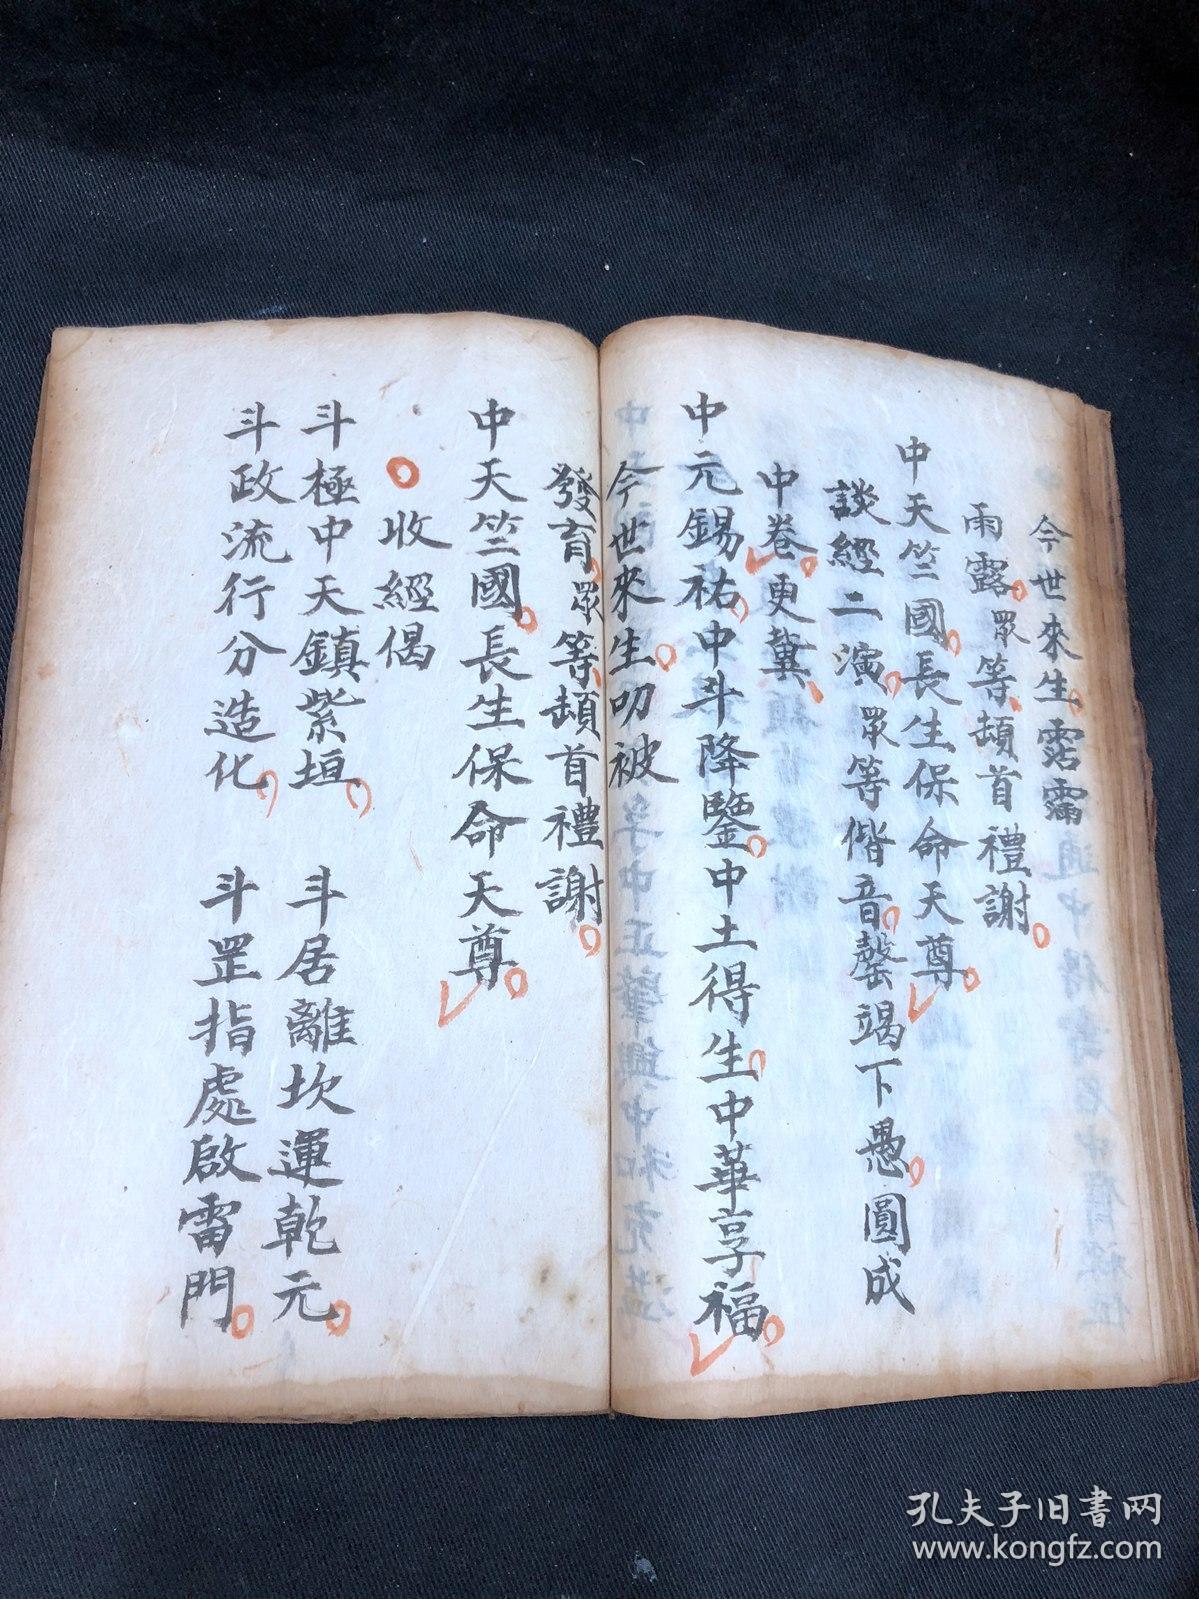 今世來生霑霑
雨露眾等頓首禮謝
中天竺國長生保命天尊
談經二演眾等偕音罄竭下愚圓成
中卷更冀
中元錫祐中斗降鑒中土得生中華享福
今世來生叨被
發育眾等頓首禮謝
中天竺國長生保命天尊
收經偈
斗極中天鎮紫垣 斗居離坎運乾元
斗政流行分造化 斗罡指處啟雷門
孔夫子旧书网
www.kongfz.com